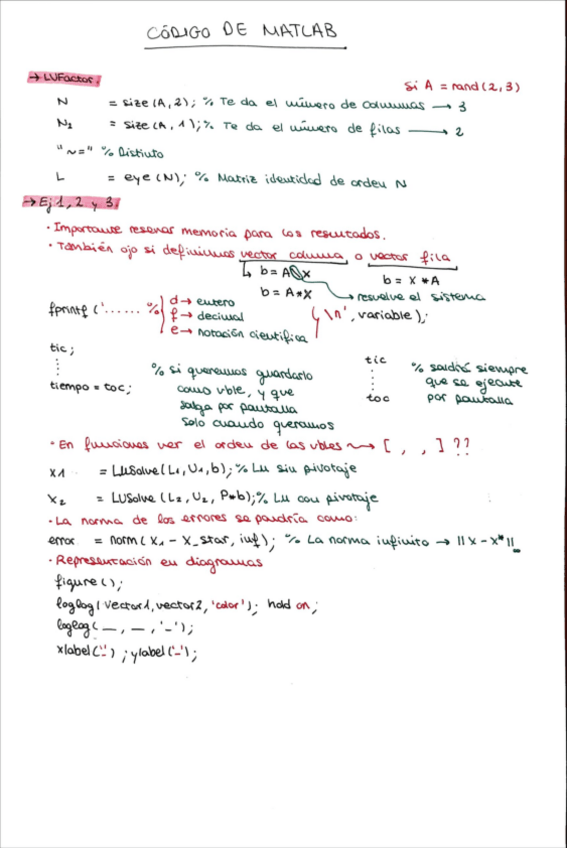 CÓDIGO DE MATLAB
→ LUFactor.
Si A = rand(2,3)
N = size(A,2); % Te da el número de columnas → 3
N₂ = size(A,1); % Te da el número de filas → 2
"~=" % Distinto
L = eye(N); % Matriz identidad de orden N
→ Ej 1, 2 y 3.
· Importante reservar memoria para los resultados.
· También ojo si definimos vector columna o vector fila
↳ b = A\x
b = x*A
b = A*x
→ resuelve el sistema
fprintf ('...... %
d → entero
f → decimal
e → notación científica
\n', variable);
tic;
⋮
tiempo = toc;
% si queremos guardarlo
como vble, y que
salga por pantalla
solo cuando queramos
tic
⋮
toc
% saldrá siempre
que se ejecute
por pantalla
· En funciones ver el orden de las vbles ⟿ [ , , ] ??
x1 = LUSolve(L₁,U₁,b); % LU sin pivotaje
x₂ = LUSolve(L₂,U₂,P*b); % LU con pivotaje
· La norma de los errores se pondría como:
error = norm(x₁ - x_star, inf); % La norma infinito → ||x - x*||
· Representación en diagramas
figure();
loglog(vector1,vector2,'color'); hold on;
loglog(_,_,'_');
xlabel('_'); ylabel('_');